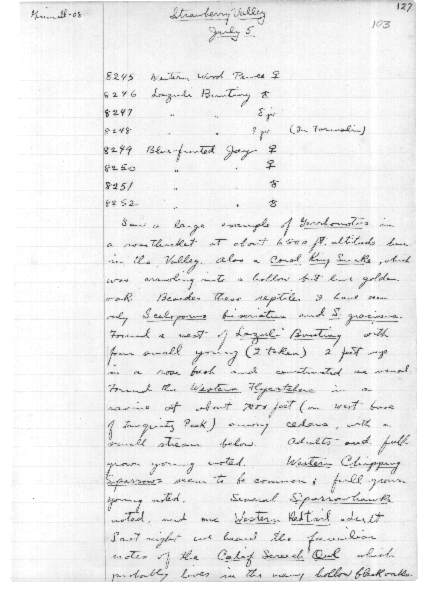 Grinnell-08
Strawberry Valley
127
July 5
103
8245 Western Wood Pewee ♀
8246 Lazuli Bunting ♂
8247 " " ♂ jr
8248 " " ? jr (In Formalin)
8249 Blue-fronted Jay ♀
8250 " " ♀
8251 " " ♂
8252 " " ♂
Saw a large example of Gerrhonotus in
a rose thicket at about 6500 ft. altitude here
in the Valley. Also a Coral King Snake, which
was crawling into a hollow but live golden
oak. Besides these reptiles I have seen
only Sceloporus biseriatus and S. graciosus.
Found a nest of Lazuli Bunting with
four small young (2 taken) 2 feet up
in a rose bush and constructed as usual.
Found the Western Flycatcher in a
ravine at about 7000 feet (on west base
of Tauquitz Peak) among cedars, with a
small stream below. Adults and full-
grown young noted. Western Chipping
Sparrows seem to be common; full grown
young noted. Several Sparrowhawks
noted, and one Western Redtail adult
Last night we heard the familiar
notes of the Calif Screech Owl which
probably lives in the many hollow black oaks.